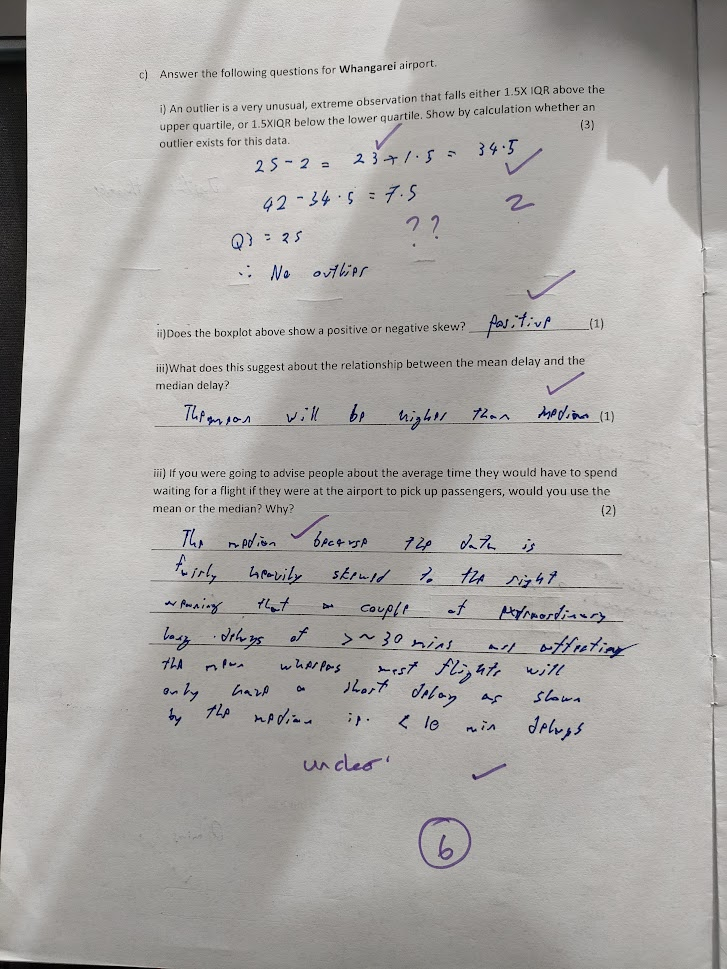 c) Answer the following questions for Whangarei airport.
i) An outlier is a very unusual, extreme observation that falls either 1.5X IQR above the
upper quartile, or 1.5XIQR below the lower quartile. Show by calculation whether an
outlier exists for this data. (3)
25 - 2 = 23 × 1.5 = 34.5
42 - 34.5 = 7.5
2
Q3 = 25
??
∴ No outlier
ii)Does the boxplot above show a positive or negative skew? Positive (1)
iii)What does this suggest about the relationship between the mean delay and the
median delay?
The mean will be higher than median (1)
iii) If you were going to advise people about the average time they would have to spend
waiting for a flight if they were at the airport to pick up passengers, would you use the
mean or the median? Why? (2)
The median because the data is
fairly heavily skewed to the right
meaning that a couple of extraordinary
long delays of >~30 mins are affecting
the mean whereas most flights will
only have a short delay as shown
by the median ie. < 10 min delays
6